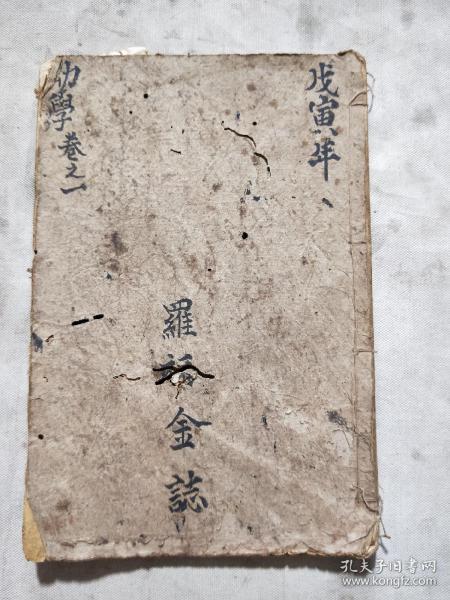 戊寅年
幼學卷之一
羅福金誌
孔夫子旧书网
www.kongfz.com